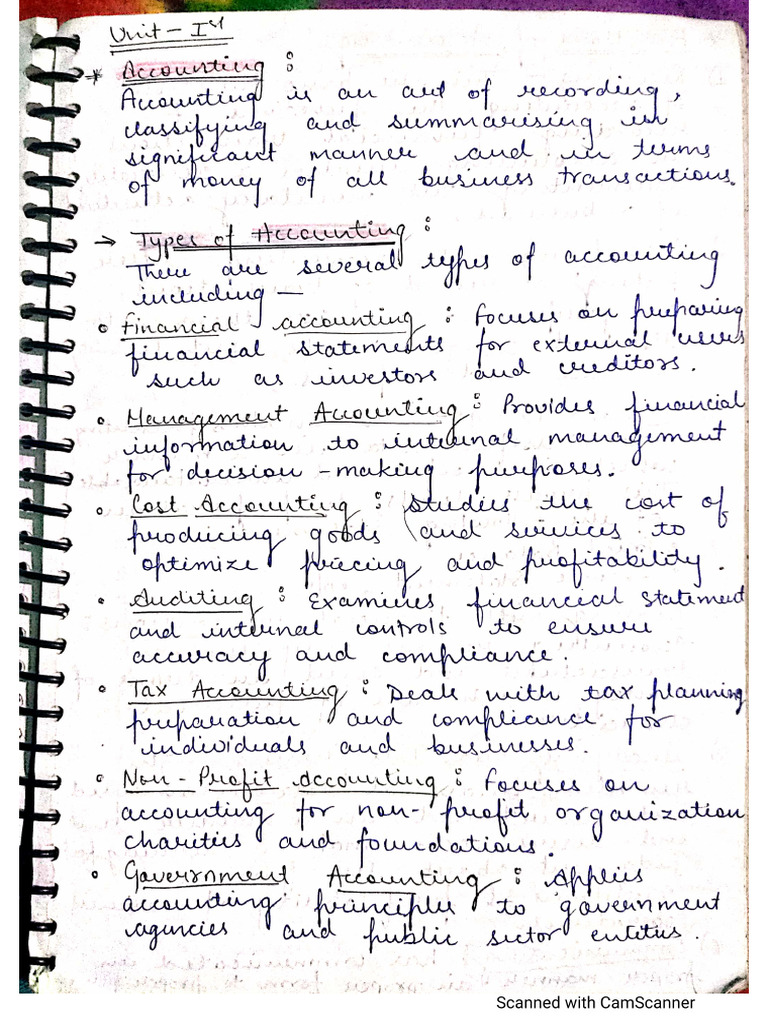 Unit - Ist
* Accounting :
Accounting is an art of recording,
classifying and summarising in
significant manner and in terms
of money of all business transactions.
→ Types of Accounting :
There are several types of accounting
including —
• Financial accounting : Focuses on preparing
financial statements for external users
such as investors and creditors.
• Management Accounting : Provides financial
information to internal management
for decision-making purposes.
• Cost Accounting : Studies the cost of
producing goods and services to
optimize pricing and profitability.
• Auditing : Examines financial statement
and internal controls to ensure
accuracy and compliance.
• Tax Accounting : Deals with tax planning
preparation and compliance for
individuals and businesses.
• Non-Profit Accounting : Focuses on
accounting for non-profit organization
charities and foundations.
• Government Accounting : Applies
accounting principles to government
agencies and public sector entities.
Scanned with CamScanner